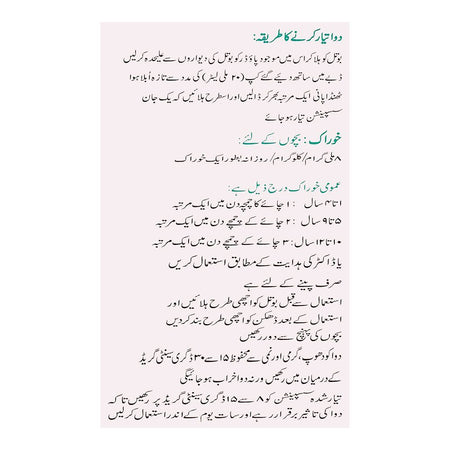 دوا تیار کرنے کا طریقہ:
بوتل کو ہلا کر اس میں موجود پاؤڈر کو بوتل کی دیواروں سے علیحدہ کرلیں
ڈبے میں ساتھ دیئے گئے کپ (۲۰ ملی لیٹر) کی مدد سے تازہ اُبلا ہوا
ٹھنڈا پانی ایک مرتبہ بھر کر ڈالیں اور اسطرح ہلائیں کہ یک جان
سسپینشن تیار ہو جائے
خوراک: بچوں کے لئے:
۸ ملی گرام/کلو گرام/روزانہ بطور ایک خوراک
عمومی خوراک درج ذیل ہے:
۱ تا ۴ سال : ۱ چائے کا چمچہ دن میں ایک مرتبہ
۵ تا ۹ سال : ۲ چائے کے چمچے دن میں ایک مرتبہ
۱۰ تا ۱۲ سال: ۳ چائے کے چمچے دن میں ایک مرتبہ
یا ڈاکٹر کی ہدایت کے مطابق استعمال کریں
صرف پینے کے لئے ہے
استعمال سے قبل بوتل کو اچھی طرح ہلائیں اور
استعمال کے بعد ڈھکن کو اچھی طرح بند کر دیں
بچوں کی پہنچ سے دور رکھیں
دوا کو دھوپ، گرمی اور نمی سے محفوظ ۱۵ سے ۳۰ ڈگری سینٹی گریڈ
کے درمیان میں رکھیں ورنہ دوا خراب ہو جائیگی
تیار شدہ سسپینشن کو ۸ سے ۱۵ ڈگری سینٹی گریڈ پر رکھیں تا کہ
دوا کی تاثیر برقرار رہے اور سات یوم کے اندر استعمال کرلیں